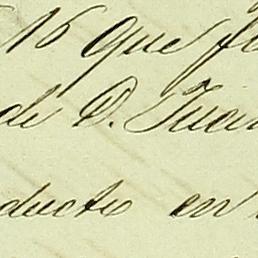 16 que fe
de D. Juan
ducto en